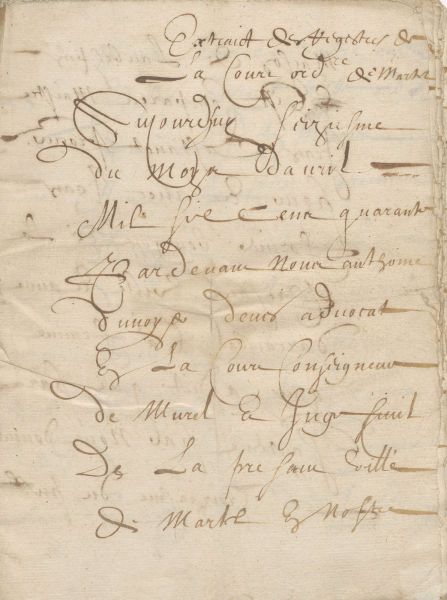 Extraict des Regestres de
La Cour ordre de Martel
Aujourdhuy seiziesme
du moys dauril
Mil six Cens quarante
Par deuant Nous anthoine
dunoyé  aduocat
En La Cour Conseigneur
de Murel Et Juge
De La pre sant ville
de Martel Et